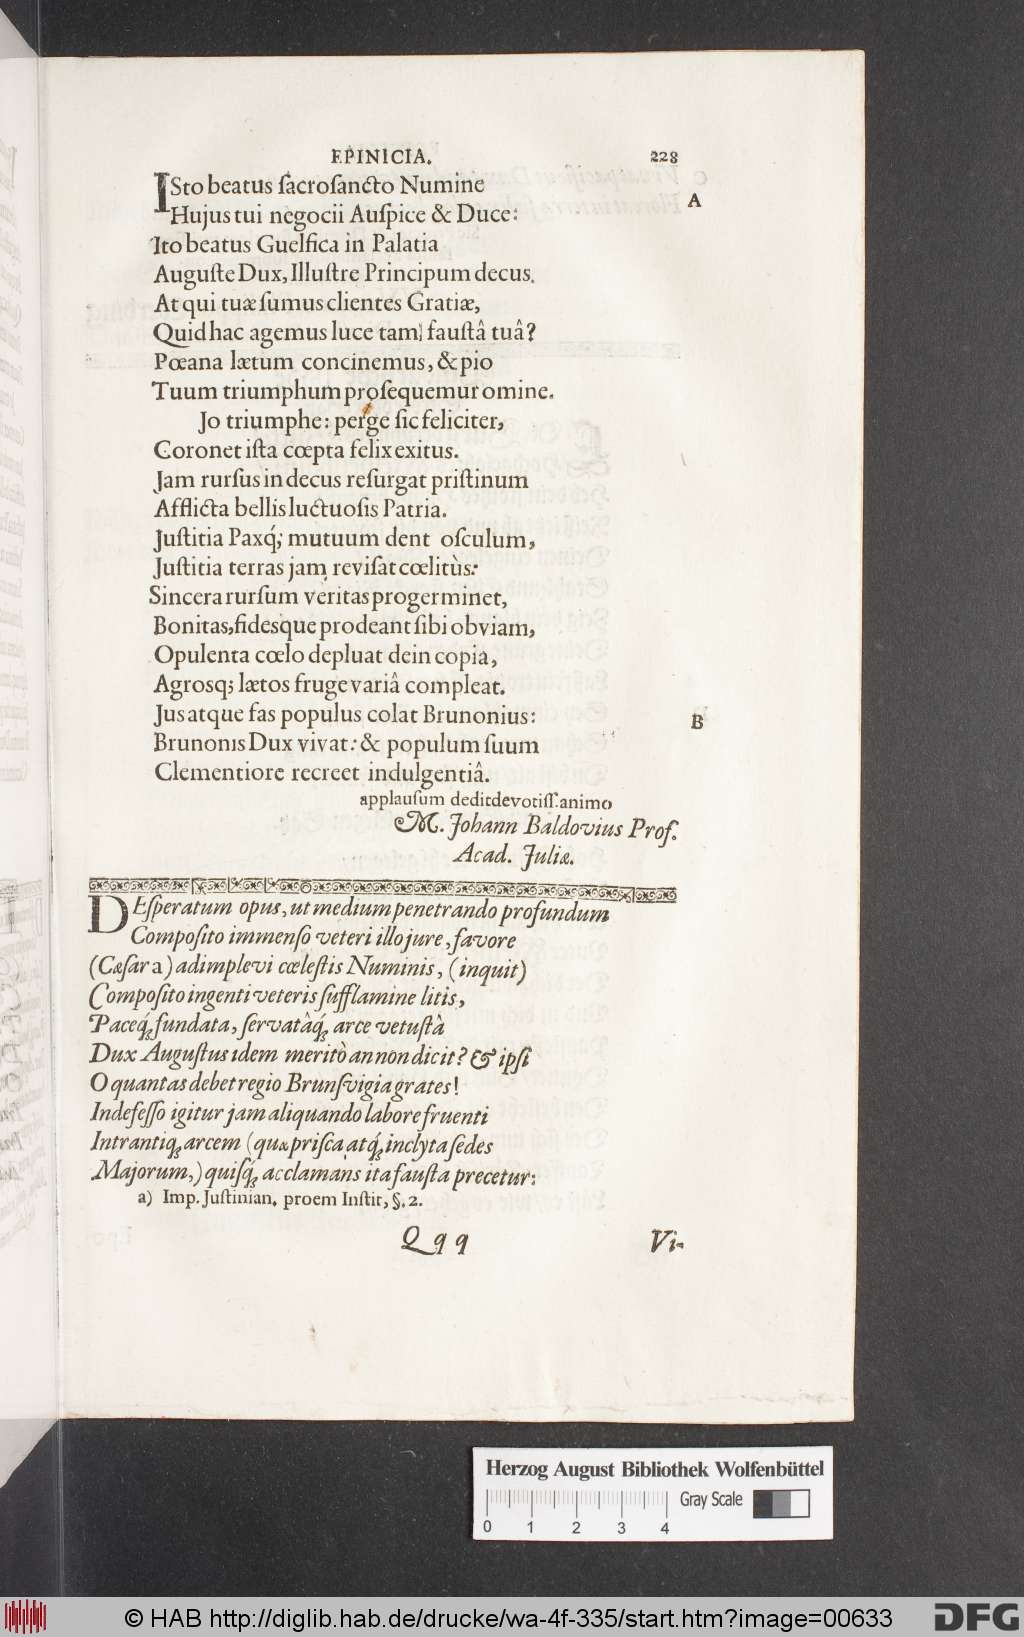 EPINICIA. 228
ISto beatus sacrosancto Numine
Hujus tui negocii Auspice & Duce: A
Ito beatus Guelfica in Palatia
Auguste Dux, Illustre Principum decus.
At qui tuæ sumus clientes Gratiæ,
Quid hac agemus luce tam faustâ tuâ?
Pœana lætum concinemus, & pio
Tuum triumphum prosequemur omine.
Jo triumphe: perge sic feliciter,
Coronet ista cœpta felix exitus.
Jam rursus in decus resurgat pristinum
Afflicta bellis luctuosis Patria.
Justitia Paxq́; mutuum dent osculum,
Justitia terras jam revisat cœlitùs:
Sincera rursum veritas progerminet,
Bonitas, fidesque prodeant sibi obviam,
Opulenta cœlo depluat dein copia,
Agrosq; lætos fruge variâ compleat.
Jus atque fas populus colat Brunonius: B
Brunonis Dux vivat: & populum suum
Clementiore recreet indulgentiâ.
applausum dedit devotiss. animo
M. Johann Baldovius Prof.
Acad. Juliæ.
DEsperatum opus, ut medium penetrando profundum
Composito immenso veteri illo jure, favore
(Cæsar a) adimplevi cœlestis Numinis, (inquit)
Composito ingenti veteris sufflamine litis,
Paceq́; fundata, servatâq́; arce vetustâ
Dux Augustus idem meritò an non dicit? & ipsi
O quantas debet regio Brunsvigia grates!
Indefesso igitur jam aliquando labore fruenti
Intrantiq; arcem (quæ prisca atq́; inclyta sedes
Majorum,) quisq́; acclamans ita fausta precetur:
a) Imp. Justinian. proem Instit, §. 2.
Qqq Vi-
Herzog August Bibliothek Wolfenbüttel
Gray Scale
0 1 2 3 4
© HAB http://diglib.hab.de/drucke/wa-4f-335/start.htm?image=00633
DFG